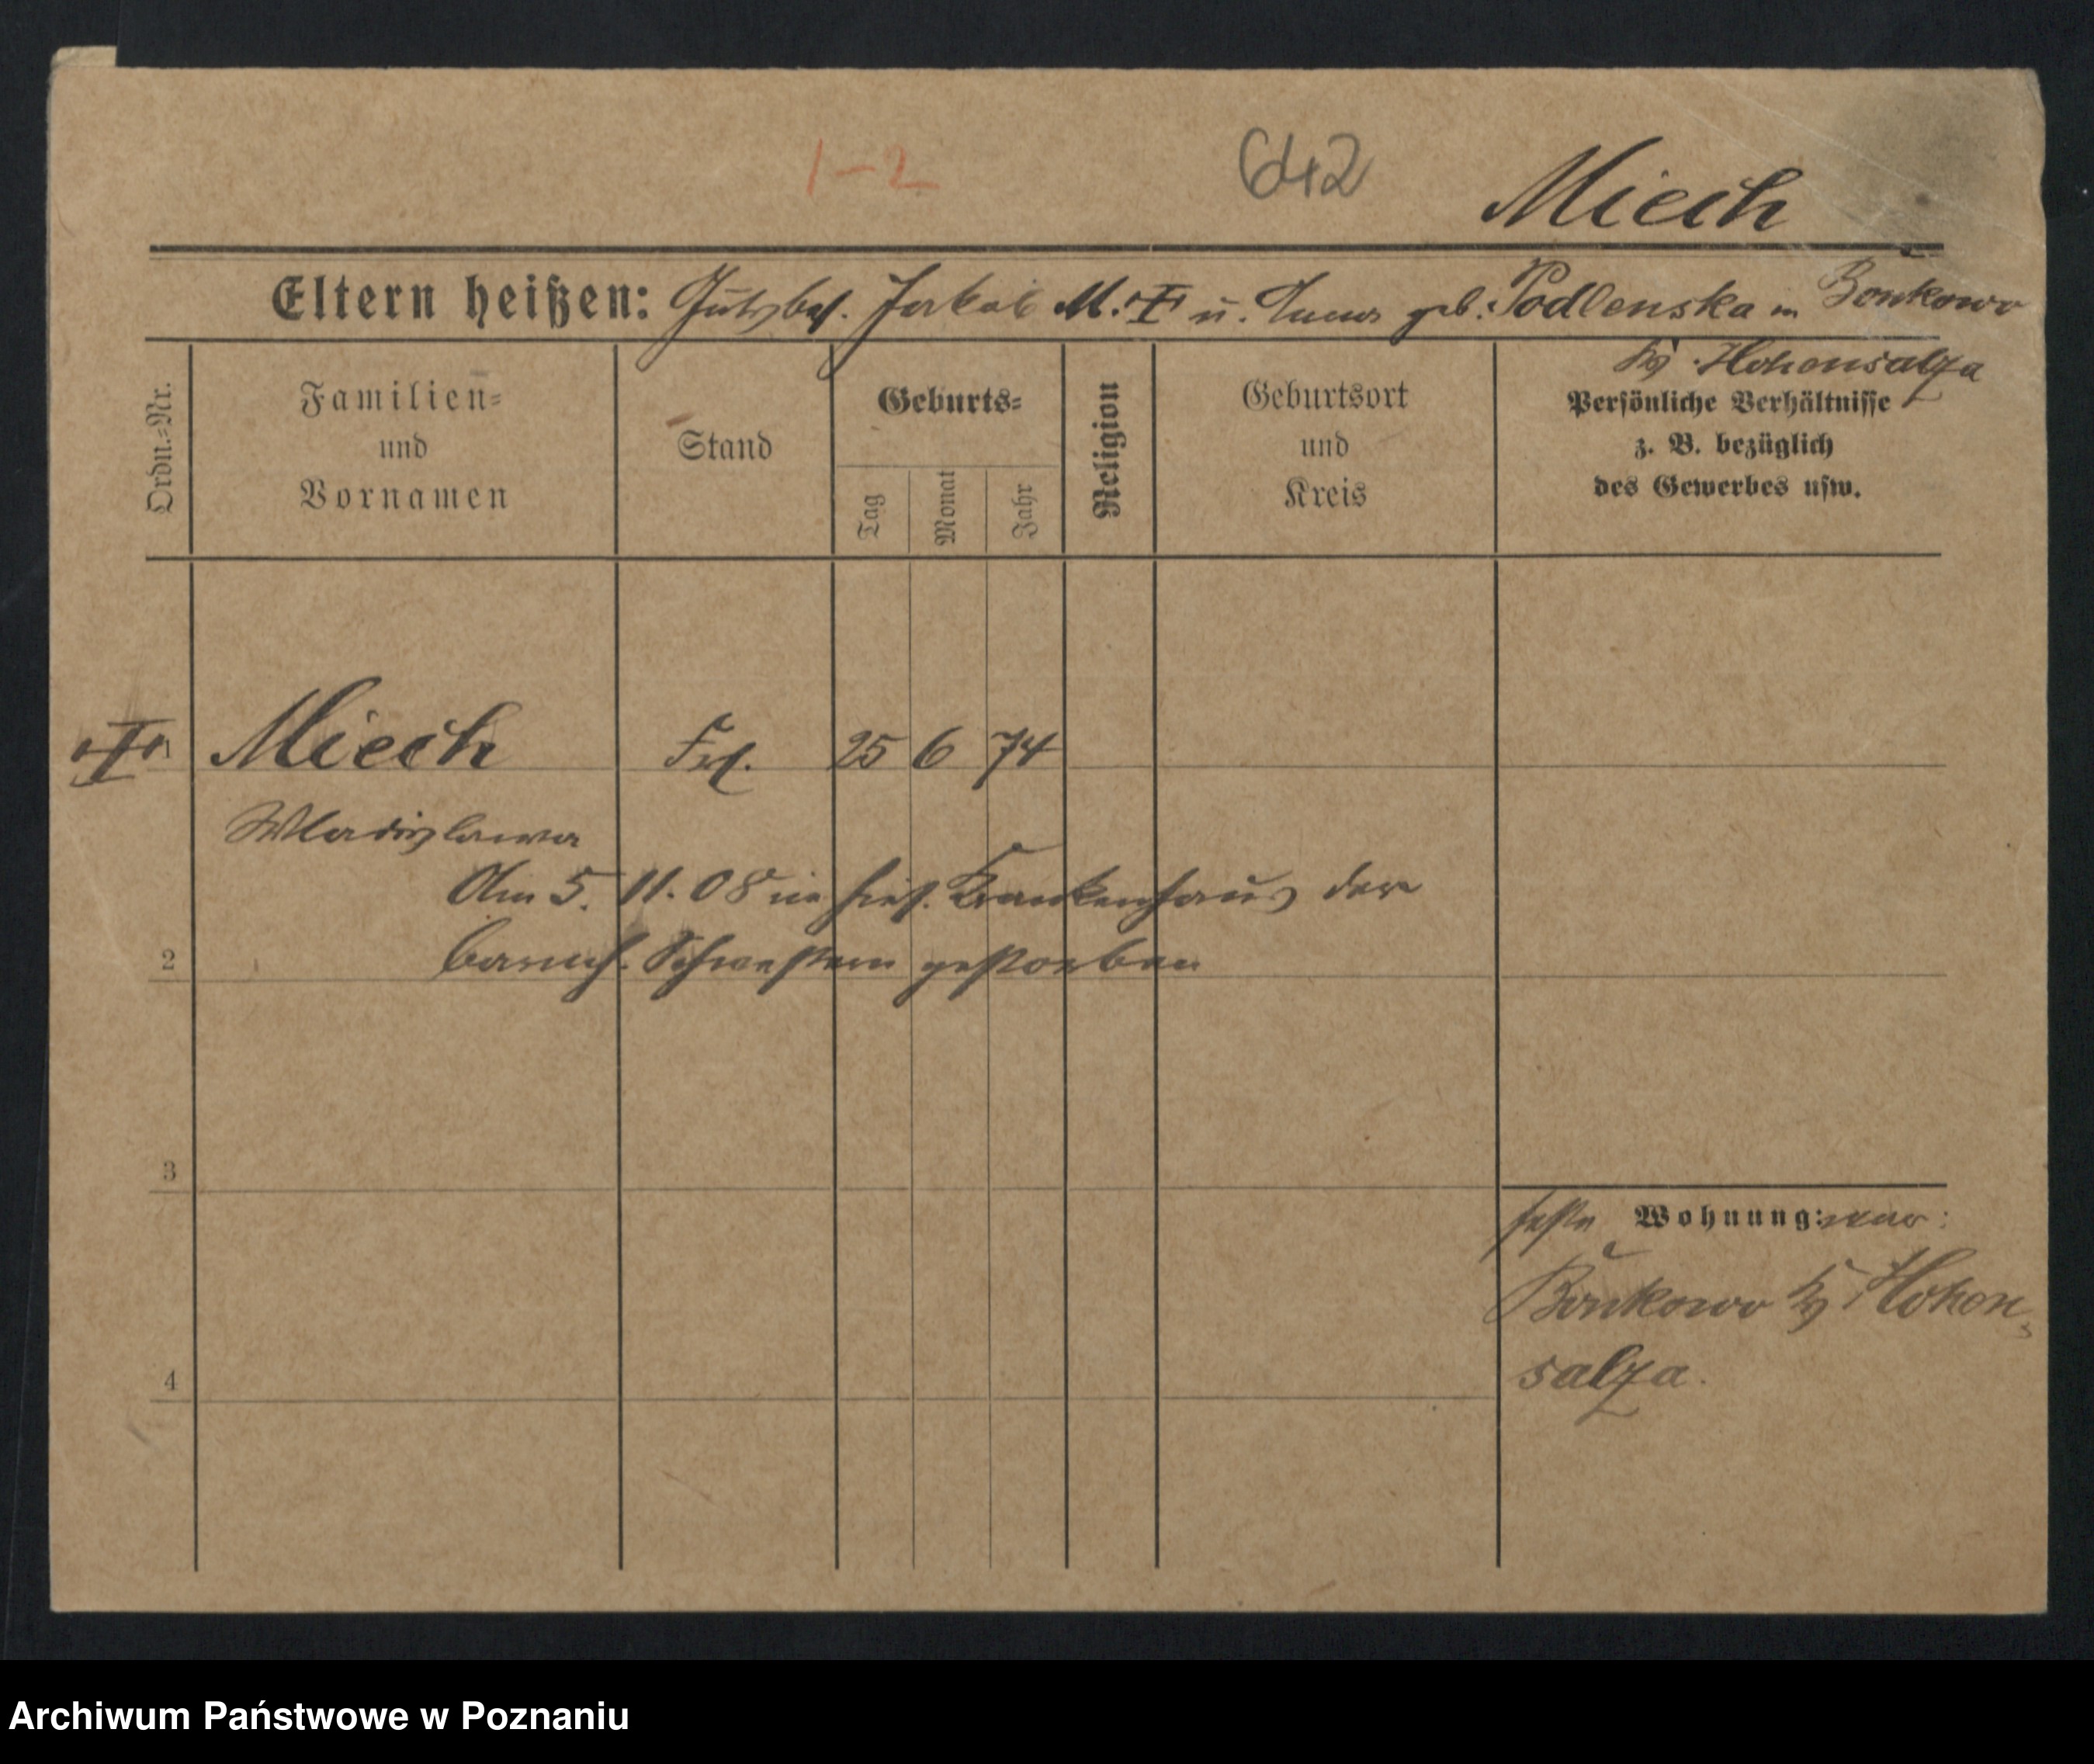 1-2
642
Miech
Eltern heißen: Gutsbes. Jakob M. u. Anna geb. Podlenska in Bonkowo
Kr. Hohensalza
Ordn.=Nr.
Familien=
und
Vornamen
Stand
Geburts=
Tag
Monat
Jahr
Religion
Geburtsort
und
Kreis
Persönliche Verhältnisse
z. B. bezüglich
des Gewerbes usw.
1 Miech Frl. 25 6 74
Wladislawa
Am 5. 11. 08 im hies. Krankenhaus der
barmh. Schwestern gestorben
2
3
feste Wohnung: war:
Bonkowo Kr. Hohen-
salza.
4
Archiwum Państwowe w Poznaniu